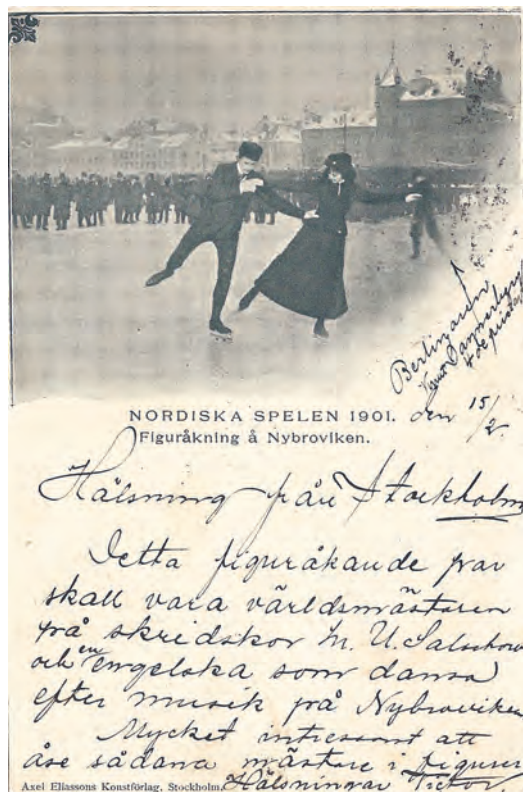 Berlinaren
NORDISKA SPELEN 1901. den 15/2.
Figuråkning å Nybroviken.
Hälsning från Stockholm
Detta figuråkande par
skall vara världsmästaren
på skridskor hr. U. Salschow
och en engelska som dansa
efter musik på Nybroviken
Mycket intressant att
åse sådana mästare i figurer
Axel Eliassons Konstförlag, Stockholm. Hälsningar Victor.